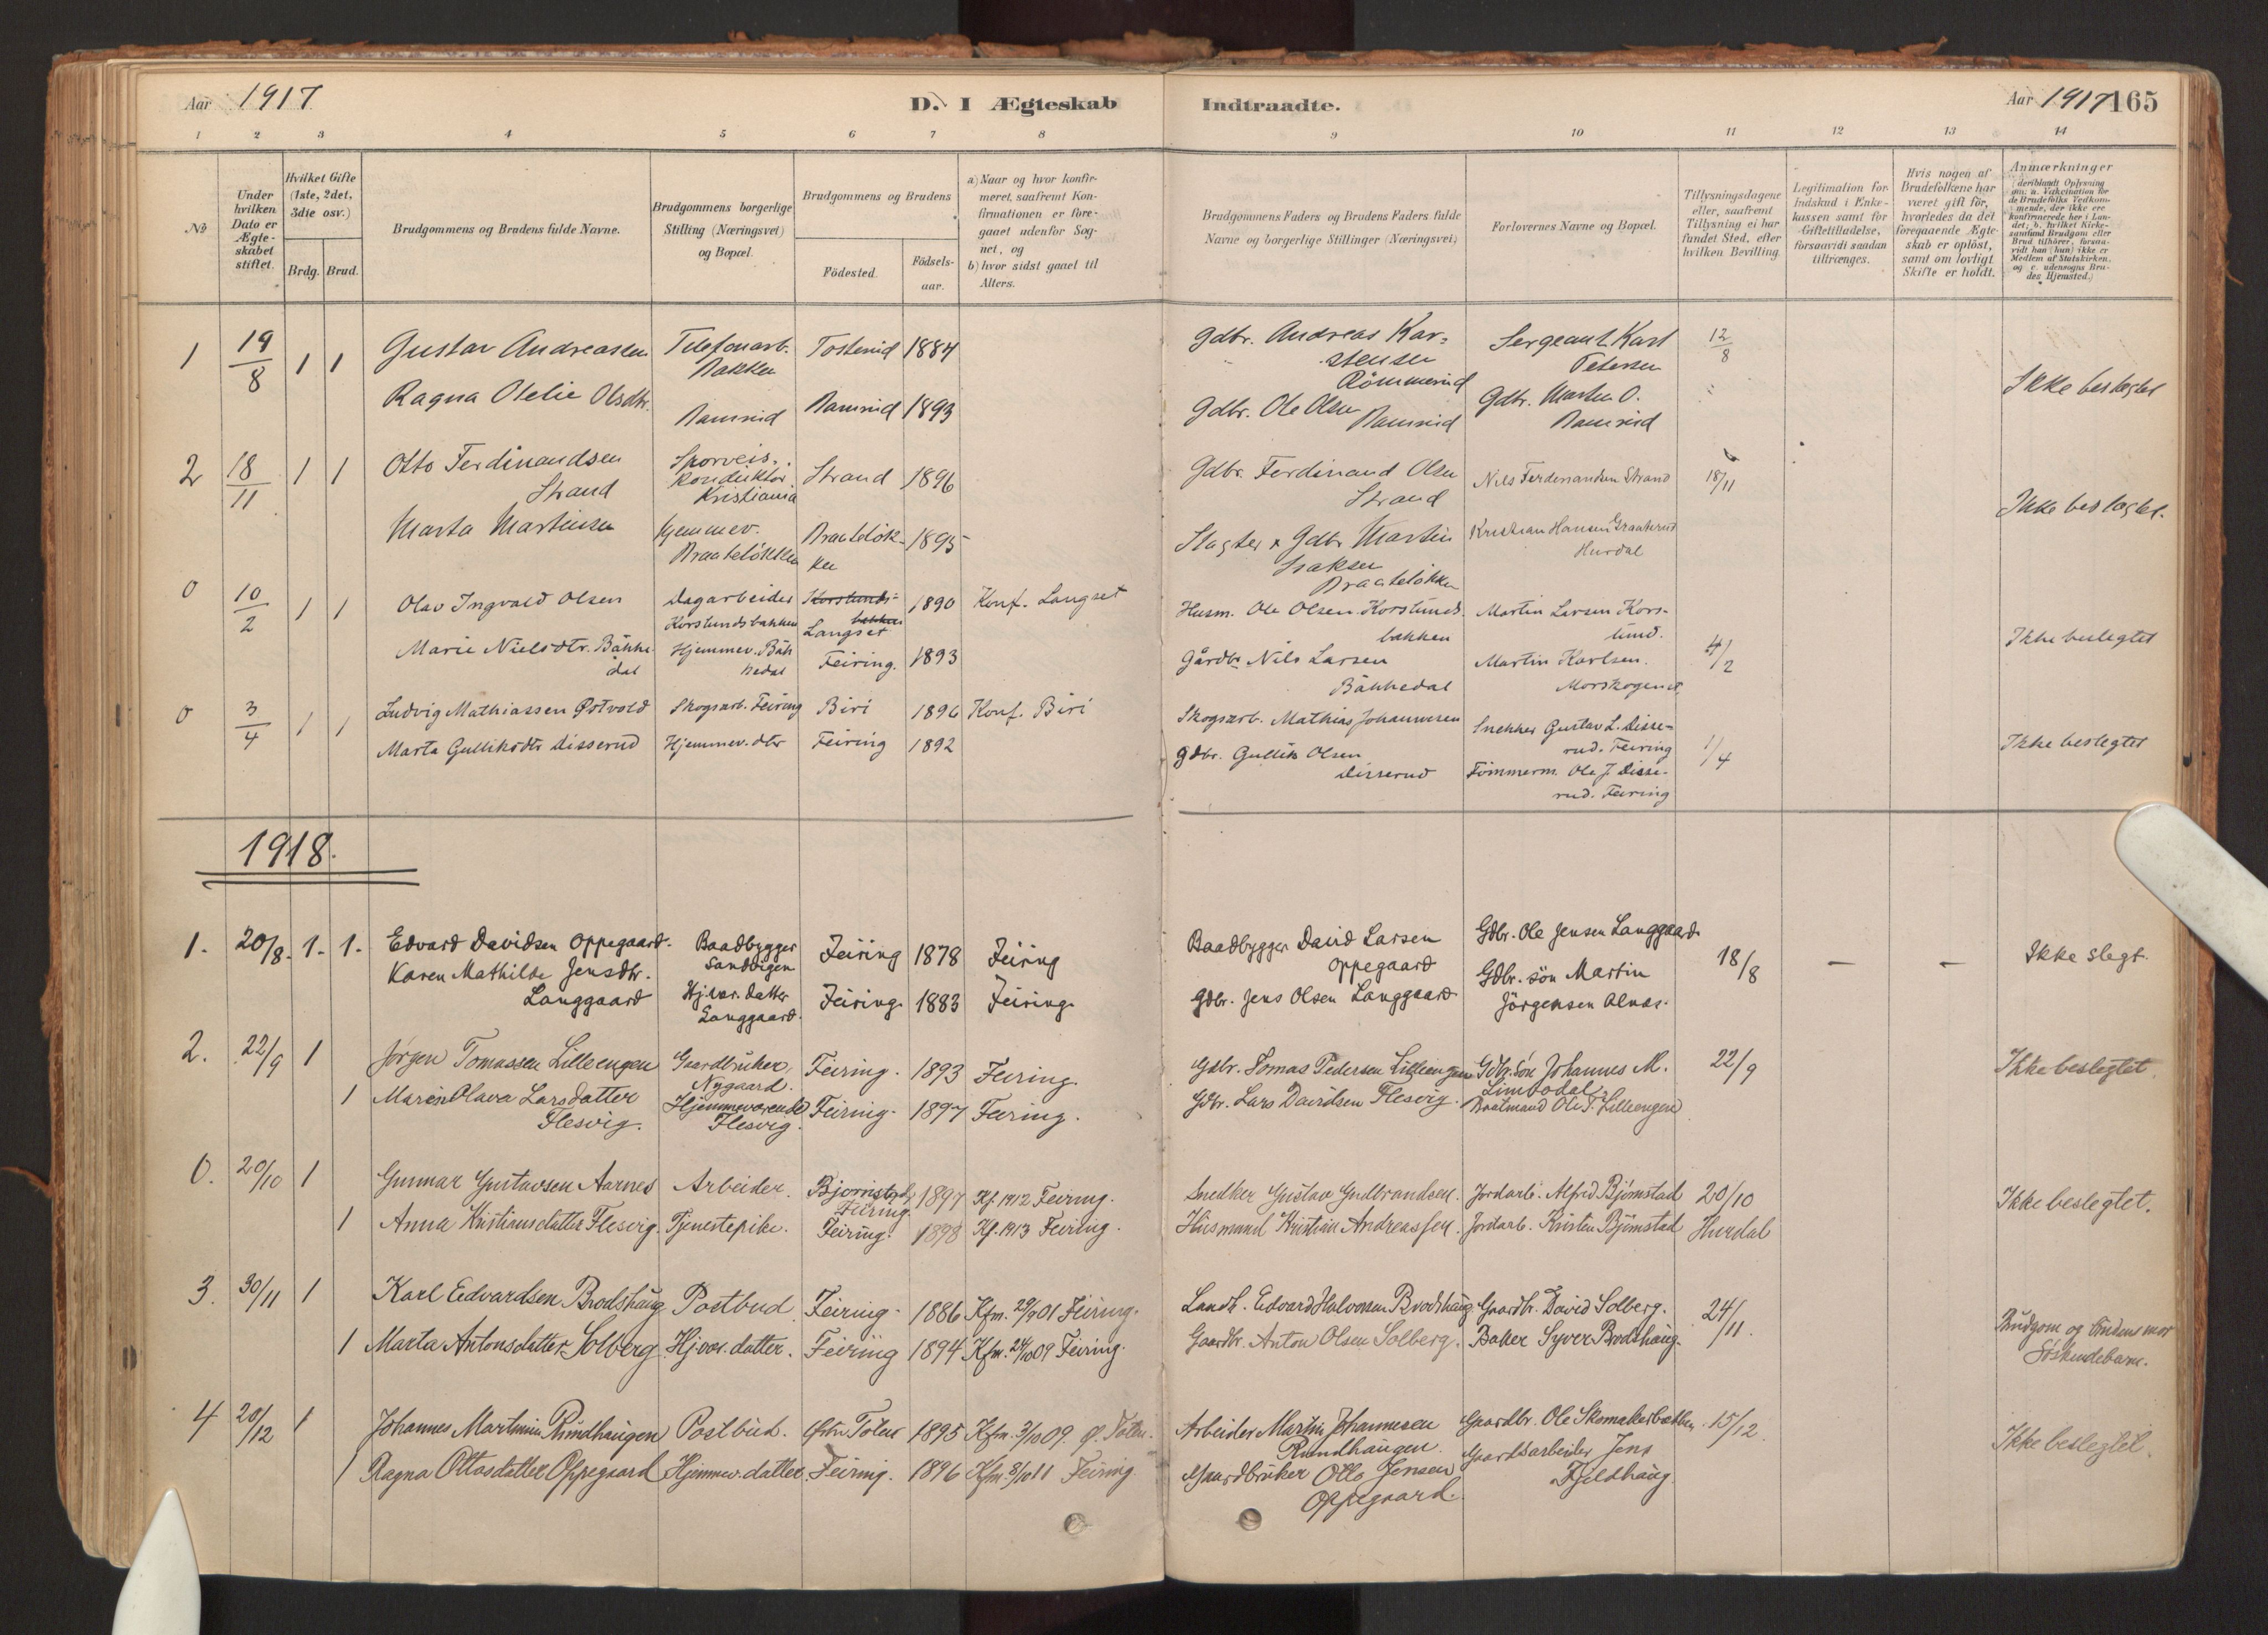 Aar 1917
D. I Ægteskab
Indtraadte.
Aar 1917
165
1 2 3 4 5 6 7 8 9 10 11 12 13 14
No
Under hvilken Dato er Ægteskabet stiftet.
Hvilket Gifte (1ste, 2det, 3die osv.)
Brdg. Brud.
Brudgommens og Brudens fulde Navne.
Brudgommens borgerlige Stilling (Næringsvei) og Bopæl.
Brudgommens og Brudens
Födested.
Födsels-aar.
a) Naar og hvor konfirmeret, saafremt Konfirmationen er foregaaet udenfor Sognet, og
b) hvor sidst gaaet til Alters.
Brudgommens Faders og Brudens Faders fulde Navne og borgerlige Stillinger (Næringsvei)
Forlovernes Navne og Bopæl.
Tillysningsdagene eller, saafremt Tillysning ei har fundet Sted, efter hvilken Bevilling.
Legitimation for Indskud i Enkekassen samt for Giftetilladelse, forsaavidt saadan tiltrænges.
Hvis nogen af Brudefolkene har været gift før, hvorledes da det foregaaende Ægteskab er oplöst, samt om lovligt Skifte er holdt.
Anmærkninger
(deriblandt Oplysning om: a. Vakcination for de Brudefolks Vedkommende, der ikke ere konfirmerede her i Landet; b. hvilket Kirkesamfund Brudgom eller Brud tilhörer, forsaavidt han (hun) ikke er Medlem af Statskirken, og c. udensogns Brudes Hjemsted.)
1 19/8 1 1 Gustav Andreasen Telefonarb. Bakken 1884
Gdbr. Andreas Karstensen Römmerud
Sergeant Karl Petersen
12/8
Ragna Otelie Olsdtr. 1893
Gdbr. Ole Olsen
Gdbr. Marten O.
Ikke beslegtet
2 18/11 1 1 Otto Ferdinandsen Strand
Sporveis. konduktör Kristiania
Strand 1896
Gdbr. Ferdinand Olsen Strand
Nils Ferdinandsen Strand
18/11
Marta Martinsen
Hjemmev. Braatelökken
Braatelökken 1895
Slagter & Gdbr Martin Isaksen Braatelökken
Kristian Hansen Hurdal
Ikke beslegtet.
0 10/2 1 1 Olav Ingvald Olsen
Dagarbeider Korslundsbakken
Korslundsbakken Langset
1890 Konf. Langset
Husm. Ole Olsen Korslundsbakken
Martin Larsen Korslund.
Marie Nielsdtr. Bäkkedal
Hjemmev. Bäkkedal
Feiring. 1893
Gårdbr Nils Larsen Bäkkedal
Martin Karlsen. Morskogen
4/2
Ikke beslegtet
0 3/4 1 1 Ludvig Mathiassen Østvold
Skogsarb. Feiring
Biri 1896 Konf. Biri
Skogsarb. Mathias Johannesen
Snekker Gustav L. Disserud. Feiring
Marta Gulliksdtr Disserud
Hjemmev. dtr
Feiring 1892
Gdbr. Gullik Olsen Disserud
Tömmerm. Ole J. Disserud. Feiring
1/4
Ikke beslegtet
1918.
1. 20/8. 1. 1. Edvard Davidsen Oppegaard.
Baadbygger Sandvigen
Feiring 1878 Feiring
Baadbygger David Larsen Oppegaard
Gdbr. Ole Jensen Langgaard
18/8 — —
Ikke slegt.
Karen Mathilde Jensdtr. Langgaard
Hj.vær. datter Langgaard.
Feiring. 1883 Feiring.
Gdbr. Jens Olsen Langgaard
Gdbr. sön Martin Jörgensen Alnæs.
2. 22/9 1 Jørgen Tomassen Lilleengen
Gaardbruker, Nygaard.
Feiring. 1893 Feiring.
Gdbr. Tomas Pedersen Lilleengen
Gdbr. sön Johannes M. Limbodal.
22/9 — —
Ikke beslegtet.
1 Maren Olava Larsdatter Flesvig.
Hjemmeværende Flesvig.
Feiring. 1897 Feiring.
Gdbr. Lars Davidsen Flesvig.
Ole T. Lilleengen
0. 20/10 1 Gunnar Gustavsen Aarnes
Arbeider.
Bjørnstad, Feiring
1897 Kf. 1912 Feiring.
Snedker Gustav Gudbrandsen.
Jordarb. Alfred Bjørnstad
20/10 Hurdal
Ikke beslegtet.
1 Anna Kristiansdatter Flesvig.
Tjenestepike.
Feiring. 1898 Kf. 1913 Feiring.
Husmand Kristian Andreassen.
Jordarb. Kristen Bjørnstad
3. 30/11 1 Karl Edvardsen Brodshaug
Postbud
Feiring. 1886 Kfm. 29/9 01 Feiring.
Landh. Edvard Halvorsen Brodshaug.
Gaardbr. David Solberg.
24/11.
1 Marta Antonsdatter Solberg.
Hjvær. datter.
Feiring 1894 Kfm. 24/10 09 Feiring.
Gaardbr. Anton Olsen Solberg.
Baker Syver Brodshaug.
Brudgom og brudens mor Söskendebarn.
4 20/12 1 Johannes Martinius Rundhaugen
Postbud.
Østre Toten 1895 Kfm. 3/10 09. Ø. Toten.
Arbeider Martin Johannesen Rundhaugen.
Gaardbr. Ole Skomakerbakken.
15/12.
1 Ragna Ottosdatter Oppegaard
Hjemmev. datter.
Feiring. 1896 Kfm. 8/10 11 Feiring.
Gaardbruker Otto Jensen Oppegaard.
Gaardsarbeider Jens Fjeldhaug.
Ikke beslegtet.